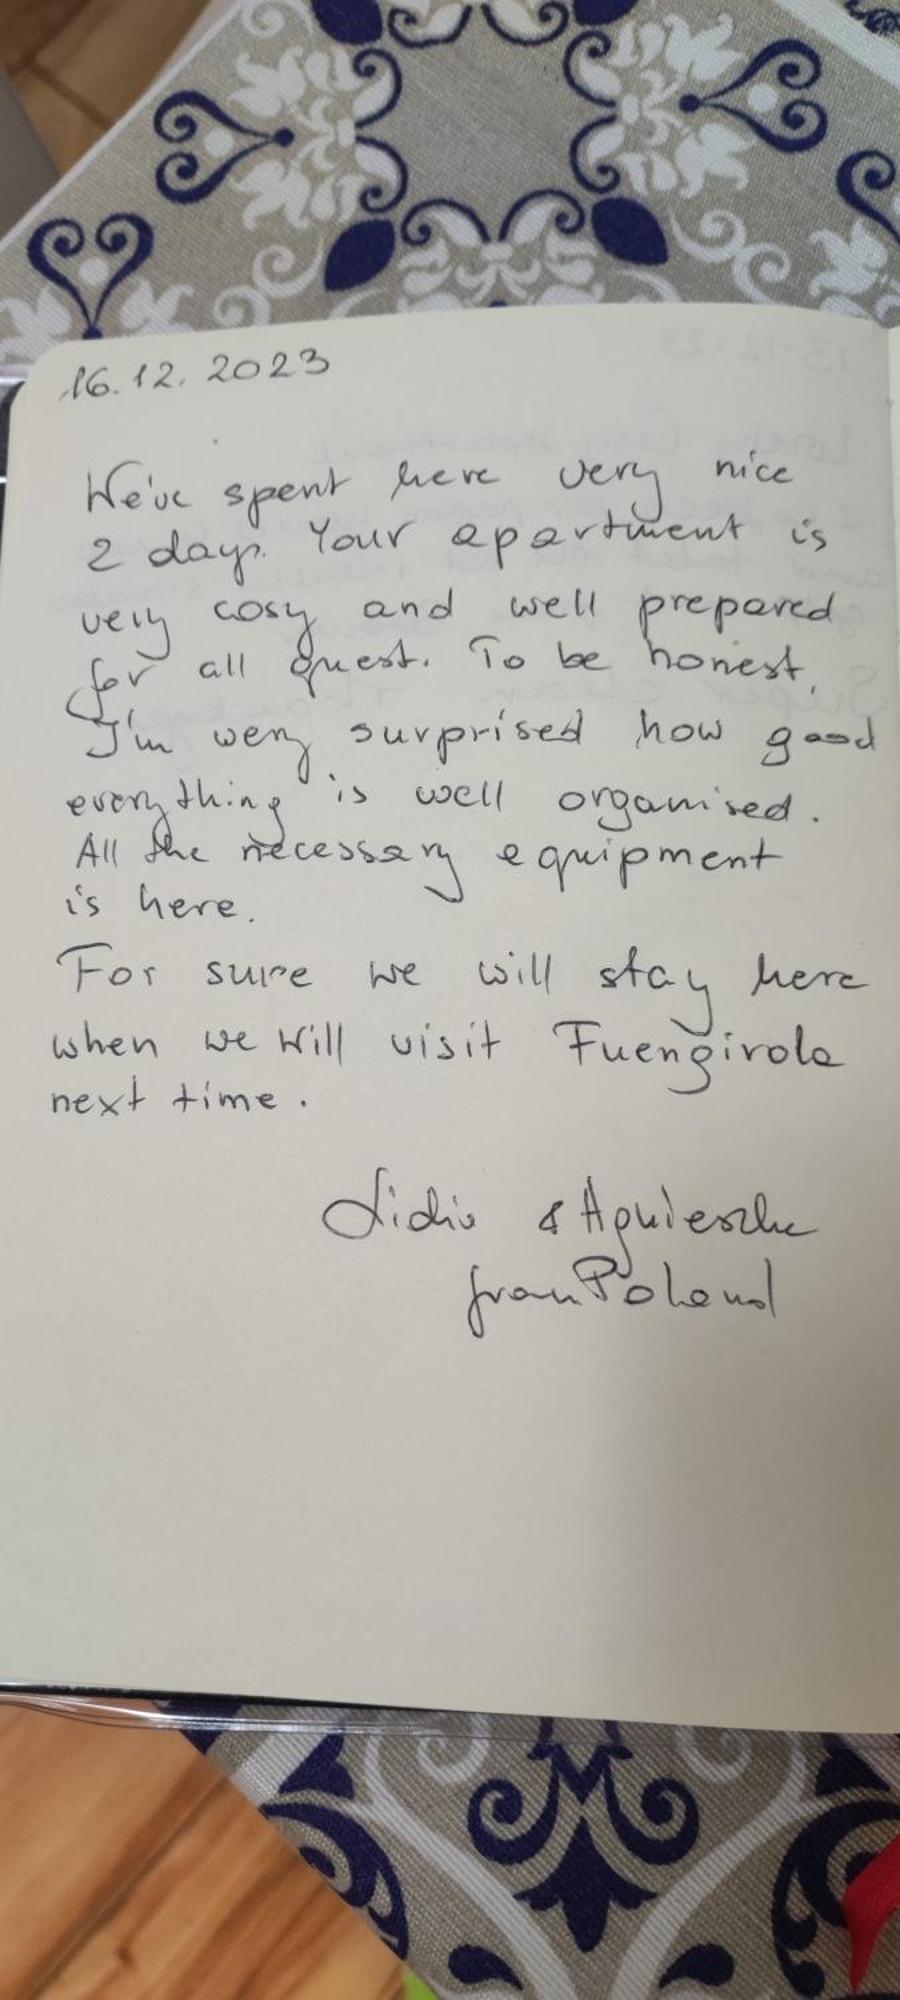 16.12.2023
We've spent here very nice
2 days. Your apartment is
very cosy and well prepared
for all quest. To be honest,
I'm wery surprised how good
everything is well organised.
All the necessary equipment
is here.
For sure we will stay here
when we will visit Fuengirola
next time.
Lidia & Agnieszka
from Poland
13-12-23
Lovely Cosy apartment
Super clean Thankyou